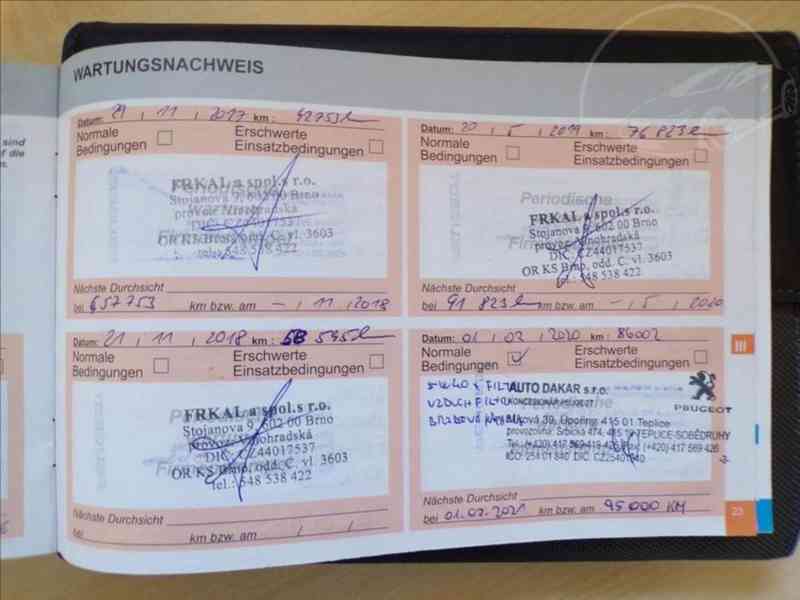 WARTUNGSNACHWEIS
sind
f die
n.
Datum: 21, 11, 2017 km: 42753
Normale Bedingungen
Erschwerte Einsatzbedingungen
FRKAL a spol.s r.o.
Stojanova 9, 602 00 Brno
provoz Vinohradská
DIČ: CZ44017537
OR KS Brno, odd. C. vl. 3603
tel.: 548 538 422
Nächste Durchsicht
bei 57753 km bzw. am - , 11 , 2018
Datum: 20, 5, 2019 km: 76 823
Normale Bedingungen
Erschwerte Einsatzbedingungen
Periodische
FRKAL a spol.s r.o.
Stojanova 9, 602 00 Brno
provoz Vinohradská
DIČ: CZ44017537
OR KS Brno, odd. C. vl. 3603
tel.: 548 538 422
Nächste Durchsicht
bei 91 823 km bzw. am - , 5 , 2020
Datum: 21, 11, 2018 km: 58 595
Normale Bedingungen
Erschwerte Einsatzbedingungen
FRKAL a spol.s r.o.
Stojanova 9, 602 00 Brno
provoz Vinohradská
DIČ: CZ44017537
OR KS Brno, odd. C. vl. 3603
tel.: 548 538 422
Nächste Durchsicht
bei km bzw. am
Datum: 01, 02, 2020 km: 86002
Normale Bedingungen
Erschwerte Einsatzbedingungen
AUTO DAKAR s.r.o.
KONCESIONÁŘ PEUGEOT
39, Úpořiny, 415 01 Teplice
provozovna: Srbická 474, 415 10 TEPLICE-SOBĚDRUHY
Tel.: (+420) 417 569 419-426 Fax: (+420) 417 569 426
IČO: 254 01 840 DIČ: CZ25401840
PEUGEOT
Nächste Durchsicht
bei 01.02.2021 km bzw. am 95 000 KM
III
23